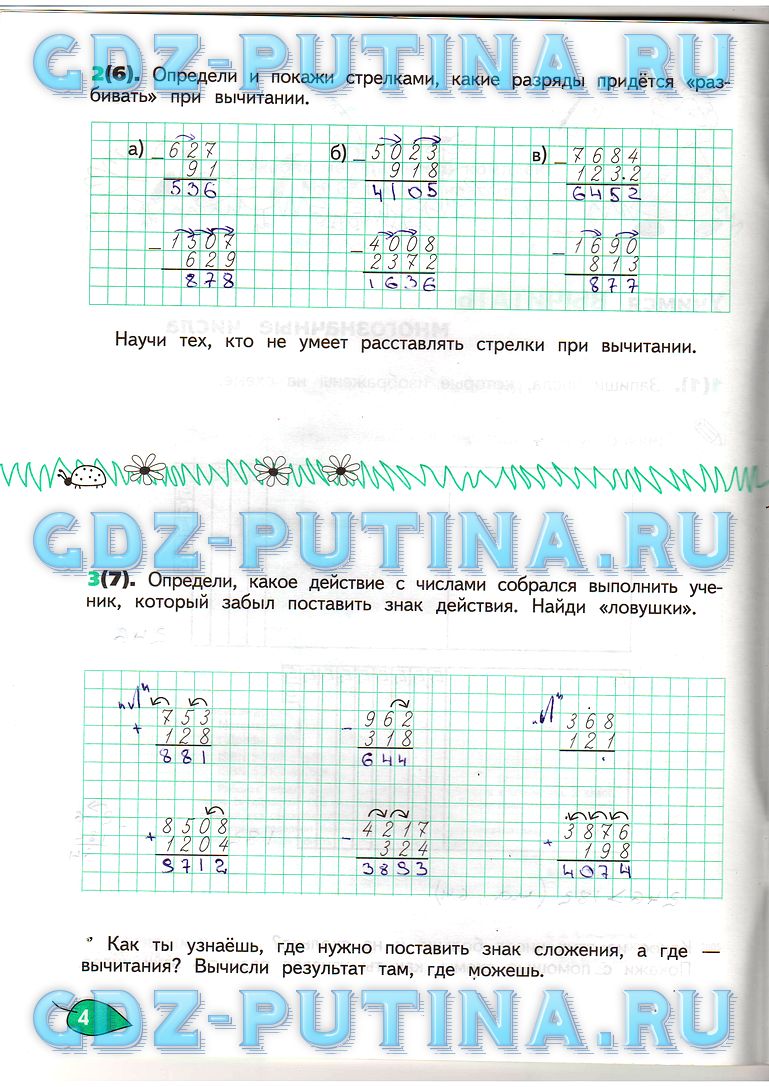 GDZ-PUTINA.RU
2(6). Определи и покажи стрелками, какие разряды придётся «раз-
бивать» при вычитании.
а) − 627 б) − 5023 в) − 7684
91 918 1232
536 4105 6452
− 1307 − 4008 − 1690
629 2372 813
878 1636 877
Научи тех, кто не умеет расставлять стрелки при вычитании.
GDZ-PUTINA.RU
3(7). Определи, какое действие с числами собрался выполнить уче-
ник, который забыл поставить знак действия. Найди «ловушки».
"Л" "Л"
+ 753 − 962 368
128 318 121
881 644
+ 8508 − 4217 + 3876
1204 324 198
9712 3893 4074
Как ты узнаёшь, где нужно поставить знак сложения, а где —
вычитания? Вычисли результат там, где можешь.
4
GDZ-PUTINA.RU